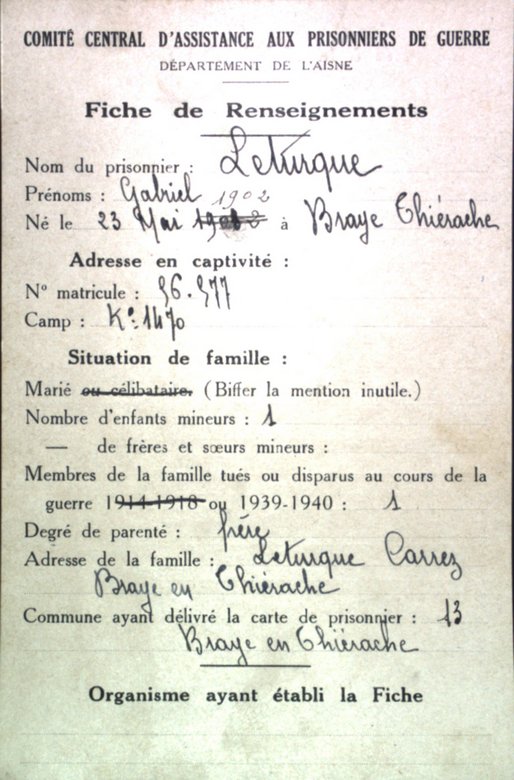 COMITÉ CENTRAL D'ASSISTANCE AUX PRISONNIERS DE GUERRE
DÉPARTEMENT DE L'AISNE
Fiche de Renseignements
Nom du prisonnier : Leturque
Prénoms : Gabriel 1902
Né le 23 Mai à Braye Thiérache
Adresse en captivité :
N° matricule : 56.577
Camp : K° 1470
Situation de famille :
Marié ou célibataire. (Biffer la mention inutile.)
Nombre d'enfants mineurs : 1
— de frères et sœurs mineurs :
Membres de la famille tués ou disparus au cours de la
guerre 1914-1918 ou 1939-1940 : 1
Degré de parenté : frère
Adresse de la famille : Leturque Carrez
Braye en Thiérache
Commune ayant délivré la carte de prisonnier : 13
Braye en Thiérache
Organisme ayant établi la Fiche